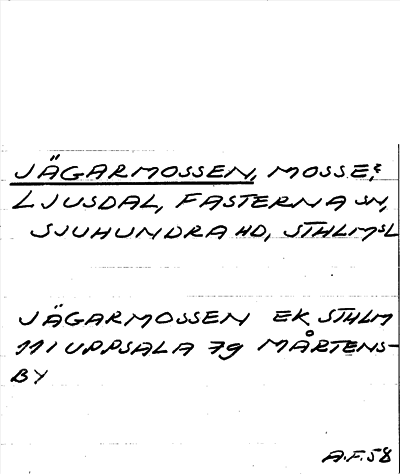 JÄGARMOSSEN, MOSSE,
LJUSDAL, FASTERNA SN,
SJUHUNDRA HD, STHLMSL
JÄGARMOSSEN EK STHLM
111 UPPSALA 79 MÅRTENS-
BY
A.F. 58